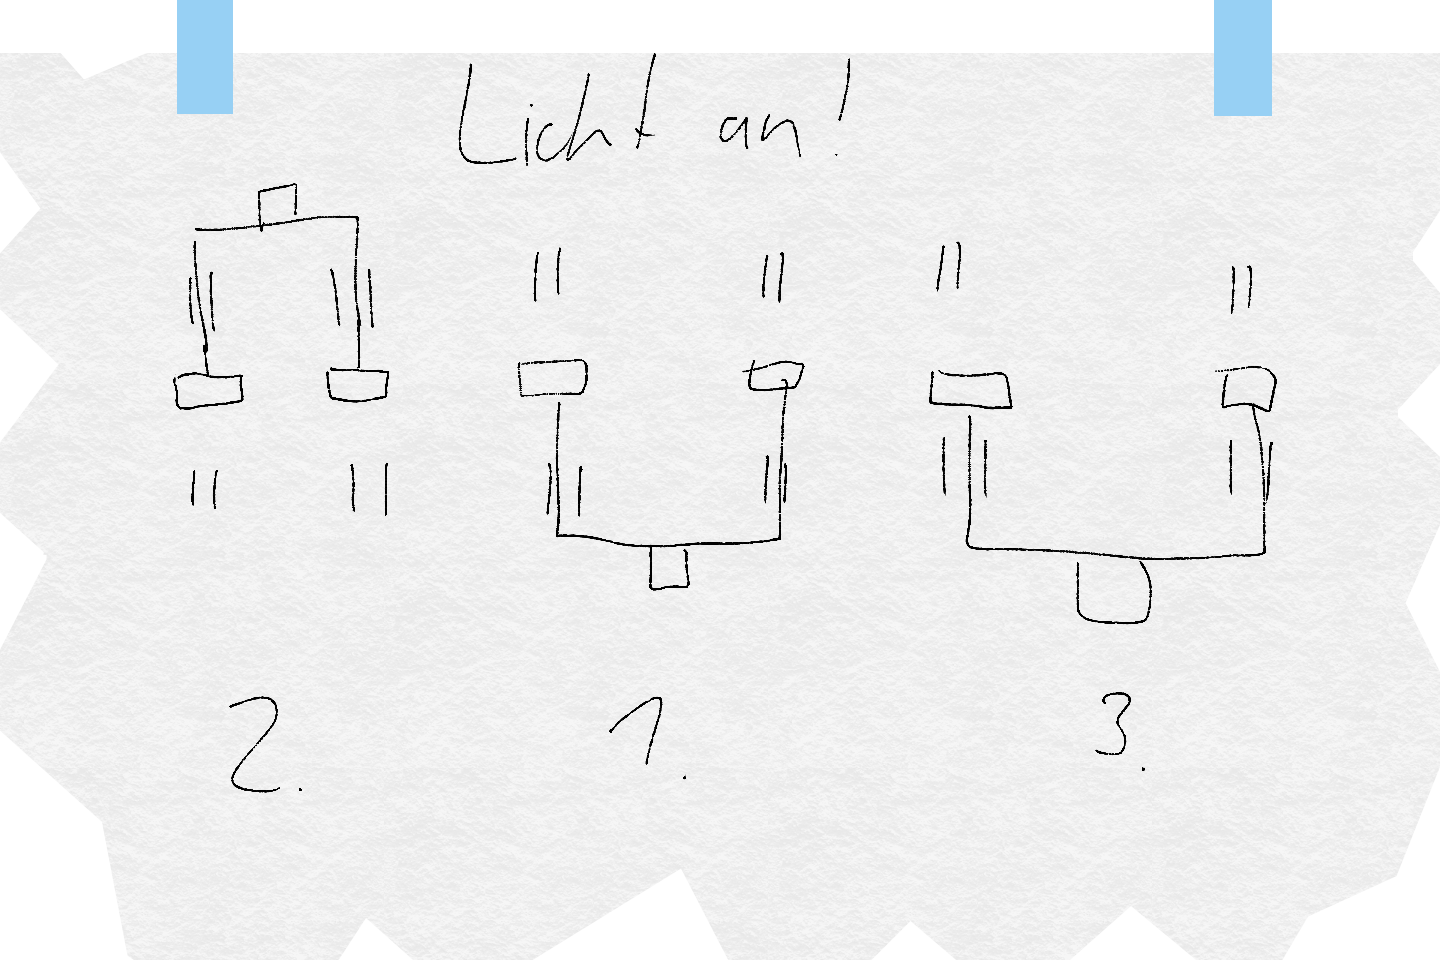 Licht an!
2. 1. 3.